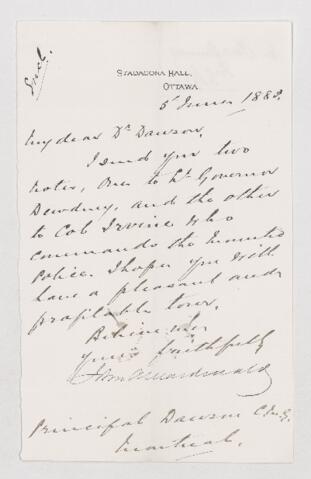 Encl.
STADACONA HALL,
OTTAWA
5 June 1883.
My dear Dr Dawson,
I send you two
notes, One to Lt Governor
Dewdney, and the other
to Col Irvine who
commands the Mounted
Police. I hope you will
have a pleasant and
profitable tour.
Believe me
yours faithfully
John A Macdonald
Principal Dawson C.M.G.
Montreal.